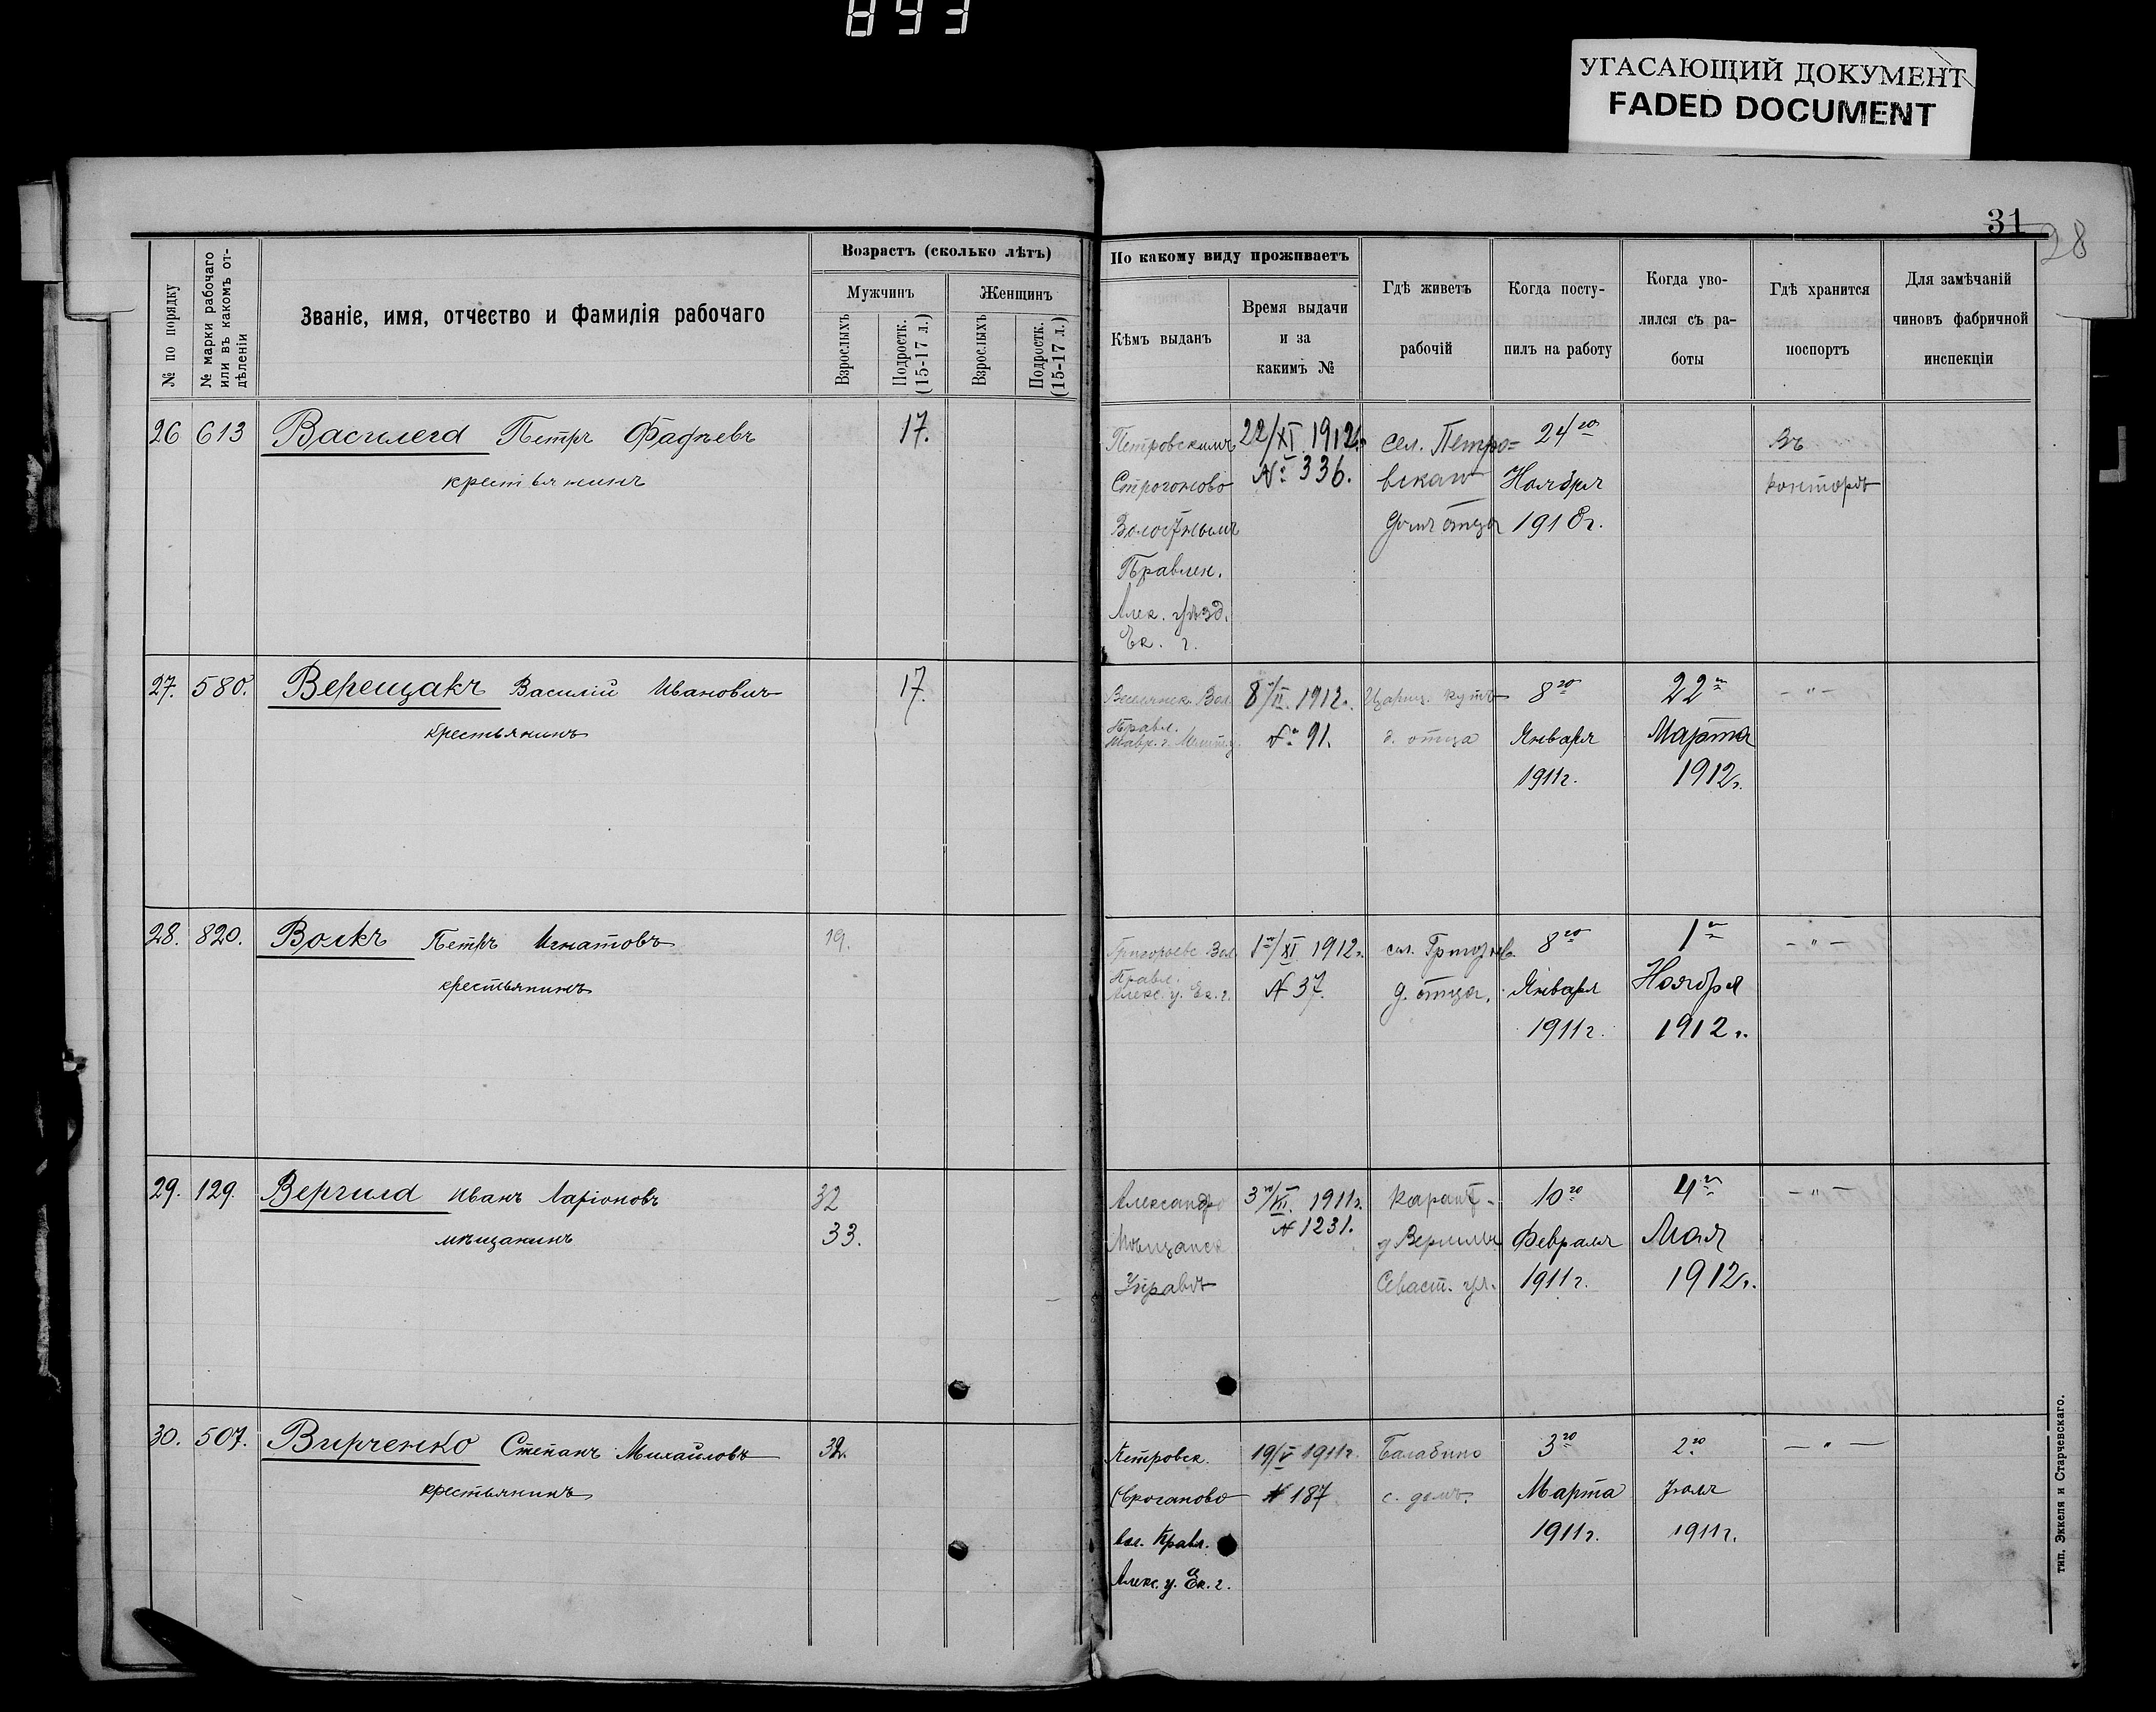 893
УГАСАЮЩИЙ ДОКУМЕНТ
FADED DOCUMENT
31
28
№ по порядку
№ марки рабочаго или въ какомъ отдѣленіи
Званіе, имя, отчество и фамилія рабочаго
Возрастъ (сколько лѣтъ)
Мужчинъ
Женщинъ
Взрослыхъ
Подростк. (15-17 л.)
Взрослыхъ
Подростк. (15-17 л.)
По какому виду проживаетъ
Кѣмъ выданъ
Время выдачи
и за
какимъ №
Гдѣ живетъ
рабочій
Когда посту-
пилъ на работу
Когда уво-
лился съ ра-
боты
Гдѣ хранится
поспортъ
Для замѣчаній
чиновъ фабричной
инспекціи
26 613 Василега Петръ Фадѣевъ
крестьянинъ
17.
Петровскимъ
Строгоново
Волостнымъ
Правлен.
Алек. уѣзд.
Ек. г.
22/XI 1912г.
№ 336.
сел. Петро=
вская
домъ отца
24го
Ноября
1910г.
Въ
конторѣ
27. 580. Верещакъ Василій Ивановичъ
крестьянинъ
17.
Веселянск. Вол.
Правл.
Тавр. г. Мелит. у.
8/II. 1912г.
№ 91.
Цариц. кутъ
д. отца
8го
Января
1911г.
22го
Марта
1912г.
— " —
28. 820. Волкъ Петръ Игнатовъ
крестьянинъ
19.
Григорьевс Вол.
Правл.
Алекс. у. Ек. г.
1го/XI 1912г.
№ 37.
сел. Григорьев.
д. отца.
8го
Января
1911г.
1го
Ноября
1912г.
— " —
29. 129. Вергила Иванъ Ларіоновъ
мѣщанинъ
32
33.
Александро
Мѣщанск
Управѣ
3го/XII. 1911г.
№ 1231.
Карант.
д Вергилы
Севаст. ул.
10го
Февраля
1911г.
4го
Мая
1912г.
— " —
30. 507. Вирченко Степанъ Михайловъ
крестьянинъ
32.
Петровск.
Строганово
вол. Правл.
Алекс. у. Ек. г.
19/V 1911г.
№ 187
Балабино
с. домъ.
3го
Марта
1911г.
2го
Іюля
1911г.
— " —
тип. Эккеля и Старчевскаго.